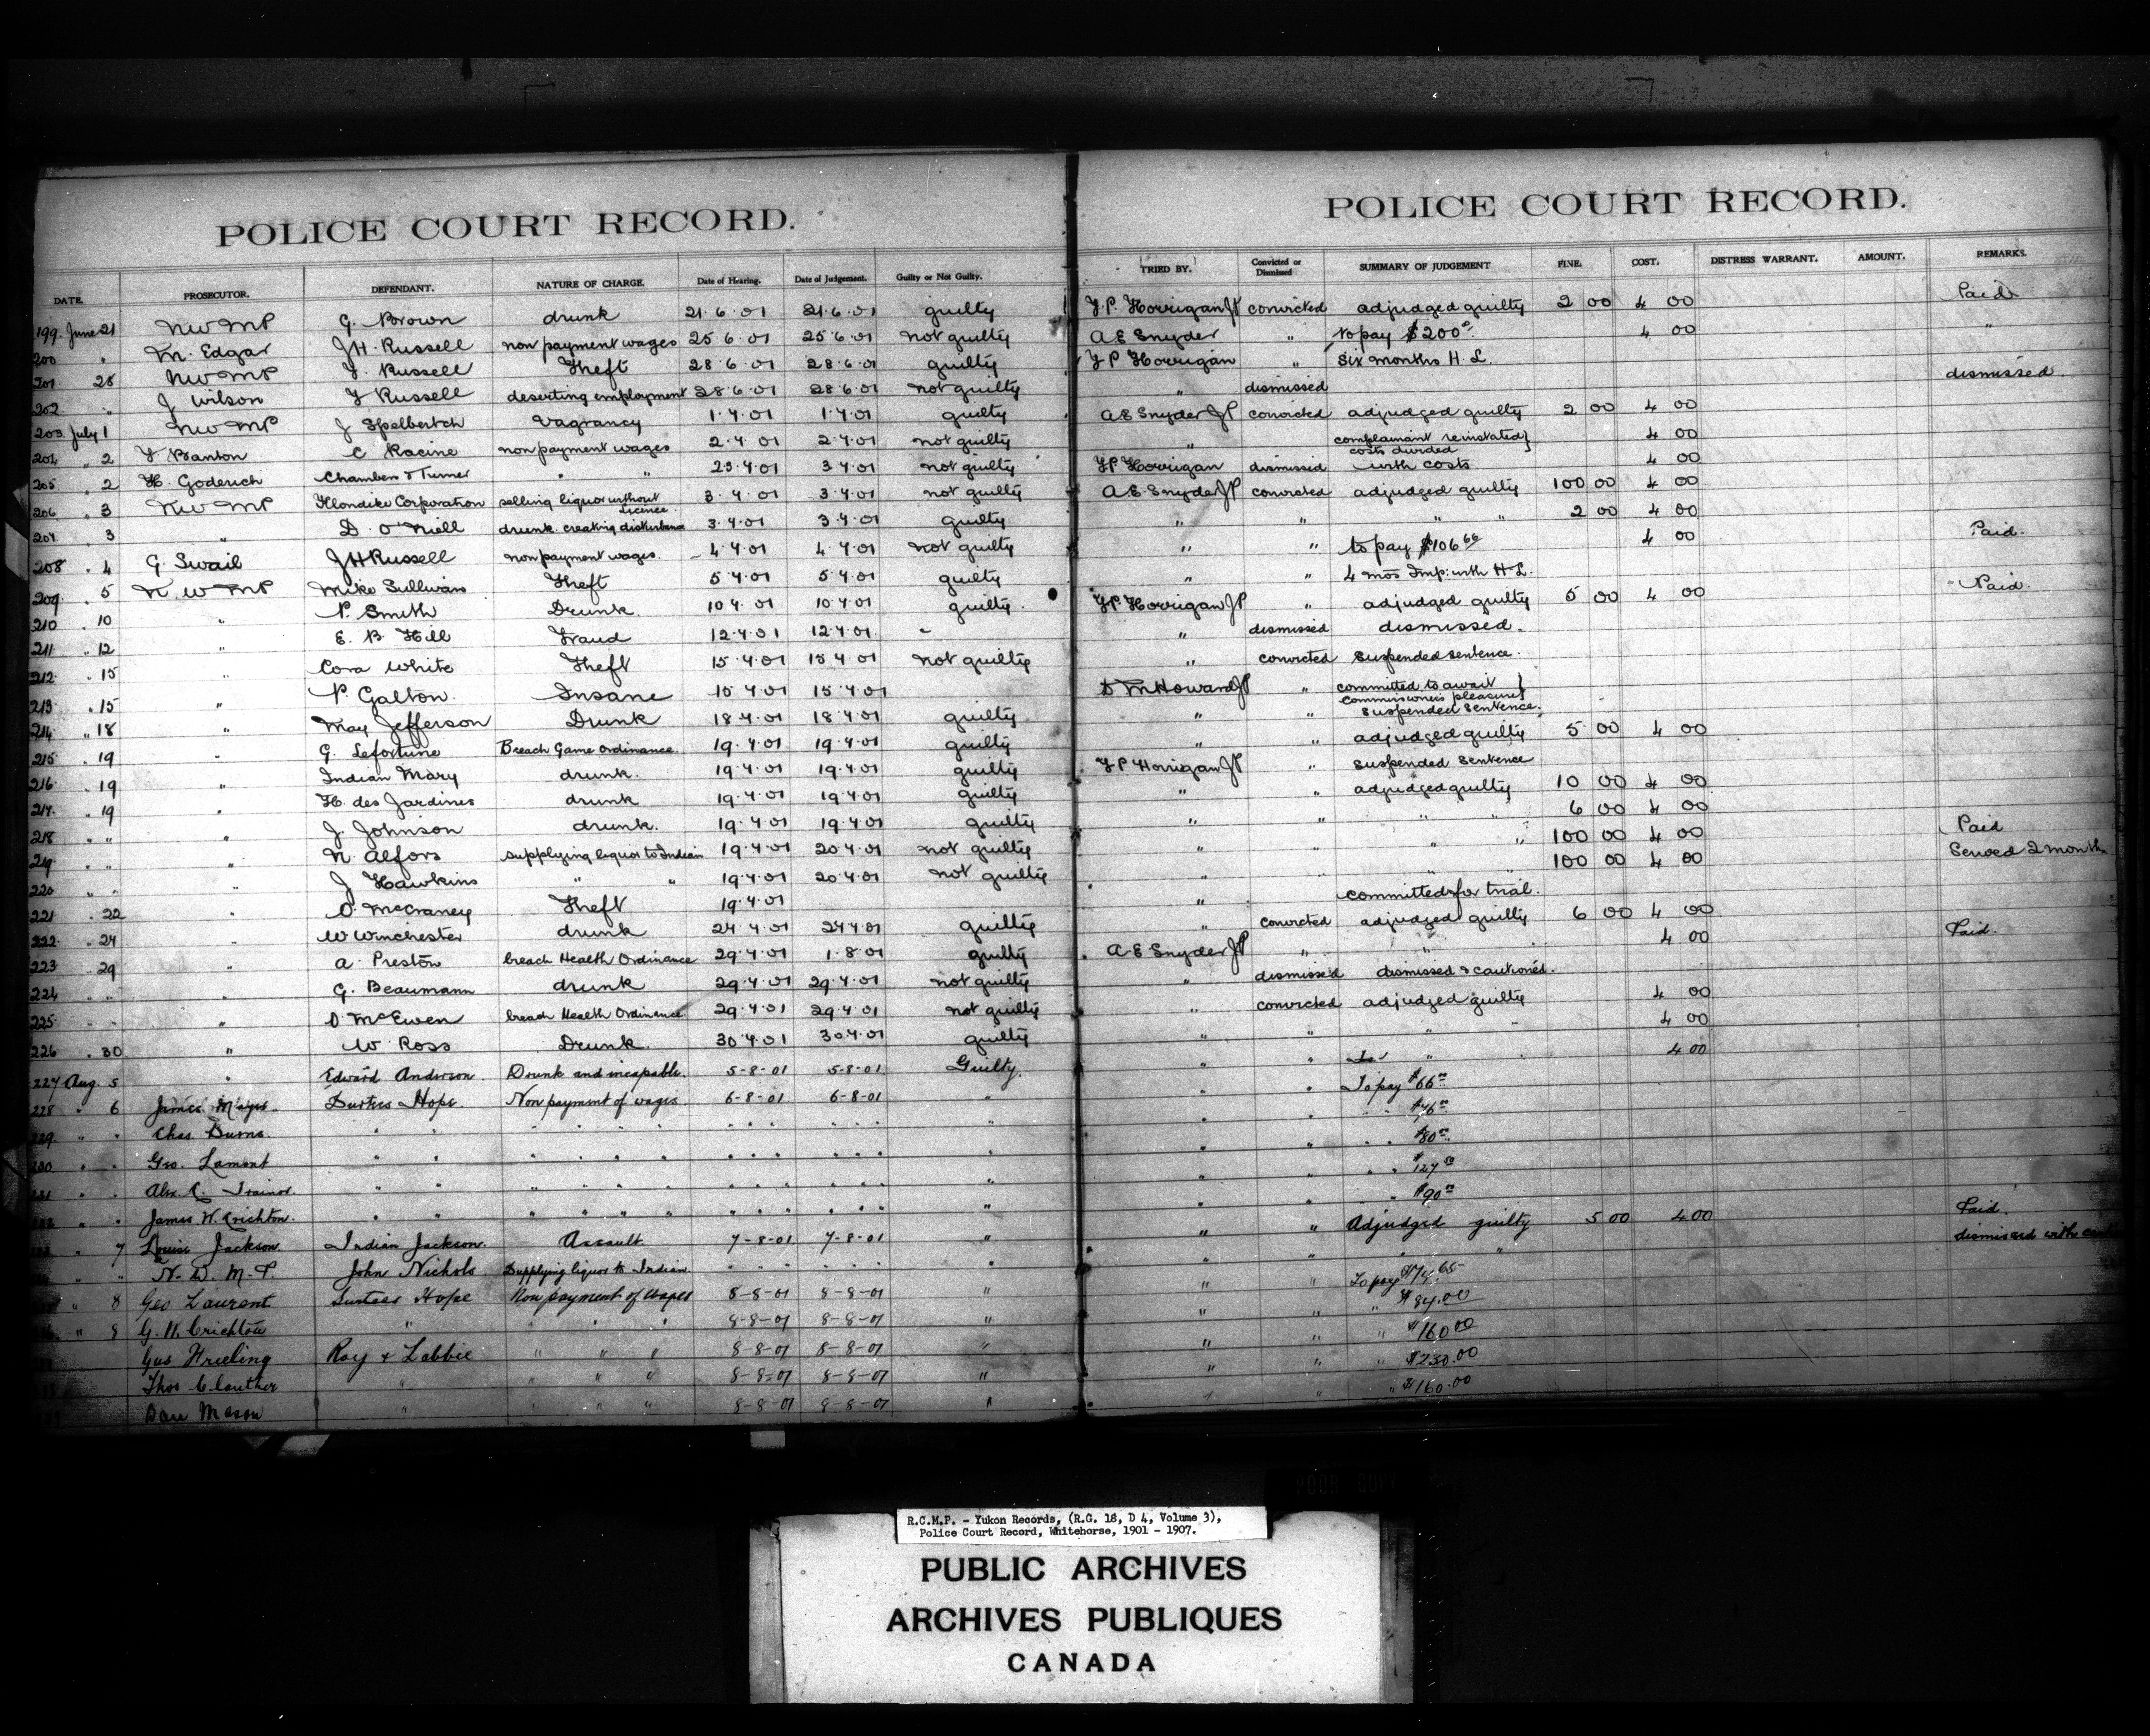 POLICE COURT RECORD.
DATE. PROSECUTOR. DEFENDANT. NATURE OF CHARGE. Date of Hearing. Date of Judgement. Guilty or Not Guilty.
199. June 21 NWMP G. Brown drunk 21.6.01 21.6.01 guilty
200 " M. Edgar JH. Russell non payment wages 25.6.01 25.6.01 not guilty
201 28 NWMP J. Russell Theft 28.6.01 28.6.01 guilty
202. " J Wilson J Russell deserting employment 28.6.01 28.6.01 not guilty
203. July 1 NWMP J Spelbertch Vagrancy 1.7.01 1.7.01 guilty
204 " 2 Y Branton C Racine non payment wages 2.7.01 2.7.01 not guilty
205 " 2 H. Goderich Chambers & Turner " " 23.7.01 3 7.01 not guilty
206 " 3 NWMP Klondike Corporation selling liquor without licence 3.7.01 3.7.01 not guilty
207. 3 " D. O'Niell drunk creating disturbance 3.7.01 3.7.01 guilty
208 " 4 G. Swail JHRussell non payment wages. 4.7.01 4.7.01 not guilty
209 " 5 N.W.MP Mike Sullivan Theft 5.7.01 5.7.01 guilty
210 " 10 " P. Smith Drunk. 10 7.01 10.7.01 guilty.
211 " 12 " E. B. Hill Fraud 12.7.01 12.7.01 "
212 " 15 " Cora White Theft 15.7.01 15 7.01 not guilty
213 " 15 " P. Galton. Insane 15 7.01 15.7.01
214 " 18 " May Jefferson Drunk 18.7.01 18.7.01 guilty
215 " 19 " G. Lefortune Breach Game Ordinance. 19.7.01 19.7.01 guilty
216 " 19 " Indian Mary drunk. 19.7.01 19.7.01 guilty
217 " 19 " H. des Jardines drunk 19.7.01 19.7.01 guilty
218 " " " J. Johnson drunk. 19.7.01 19.7.01 guilty
219 " " " N. Alfors supplying liquor to Indian 19.7.01 20.7.01 not guilty
220 " " " J Hawkins " " 19.7.01 20.7.01 not guilty
221 " 22 " D. McCraney Theft 19.7.01
222 " 24 " W Winchester drunk 24.7.01 24 7.01 guilty
223 " 29 " A. Preston breach Health Ordinance 29.7.01 1.8.01 guilty
224 " " " G. Beaumann drunk 29.7.01 29.7.01 not guilty
225 " " " D. McEwen breach Health Ordinance 29.7.01 29.7.01 not guilty
226 " 30 " W. Ross Drunk. 30.7.01 30.7.01 guilty
227 Aug. 5 " Edward Anderson. Drunk and incapable. 5-8-01 5-8-01 Guilty.
228 " 6 James Mayes. Surtees Hope. Non payment of wages. 6-8-01 6-8-01 "
229. " " Chas Burns. " " " " " " " " " " " " "
230 " " Geo. Lamont " " " " " " " " " " " " "
231 " " Alex. R. Trainor. " " " " " " " " " " " " "
232 " " James W. Crichton. " " " " " " " " " " " " "
" 7 Louise Jackson. Indian Jackson. Assault. 7-8-01 7-8-01 "
" " N. W. M. P. John Nichols Supplying liquor to Indian. " " " " " " "
" 8 Geo Laurent Surtees Hope Non payment of wages 8-8-01 8-8-01 "
" 8 G. W. Crichton " " " " 8-8-01 8-8-01 "
Gus Frieling Roy & Labbie " " " 8-8-01 8-8-01 "
Thos Clauther " " " " 8-8-01 8-8-01 "
Dan Mason " " " " 8-8-01 8-8-01 "
POLICE COURT RECORD.
TRIED BY. Convicted or Dismissed SUMMARY OF JUDGEMENT FINE. COST. DISTRESS WARRANT. AMOUNT. REMARKS.
F.P. Horrigan JP convicted adjudged guilty 2 00 4 00 Paid
A E Snyder " to pay $200 4 00 "
F P Horrigan " six months H.L.
" dismissed dismissed.
A E Snyder JP convicted adjudged guilty 2 00 4 00
" complainant reinstated costs divided 4 00
F.P Horrigan dismissed with costs 4 00
A.E. Snyder JP convicted adjudged guilty 100 00 4 00
" " " " 2 00 4 00
" " to pay $106 66 4 00 Paid.
" " 4 mos Imp. with H.L.
F.P Horrigan JP " adjudged guilty 5 00 4 00 Paid.
" dismissed dismissed.
" convicted suspended sentence.
D M Howard JP " committed to await Commissioners pleasure
" " suspended sentence.
" " adjudged guilty 5 00 4 00
F P Horrigan JP " suspended sentence
" " adjudged guilty 10 00 4 00
" " " " 6 00 4 00
" " " " 100 00 4 00 Paid
" " " " 100 00 4 00 Served 2 months
" committed for trial.
" convicted adjudged guilty 6 00 4 00
A-E Snyder JP " " 4 00 Paid.
" dismissed dismissed & cautioned.
" convicted adjudged guilty 4 00
" " " " 4 00
" " " 4 00
" " To pay $66 00
" " " " $76 00
" " " " $80 00
" " " " $127 50
" " " " $90 00
" " Adjudged guilty 5 00 4 00 Paid.
" " " " dismissed with
" " To pay $74.65
" " " $84.00
" " " $160 00
" " " $230.00
" " " $160.00
POOR COPY
R.C.M.P. - Yukon Records, (R.G. 18, D 4, Volume 3),
Police Court Record, Whitehorse, 1901 - 1907.
PUBLIC ARCHIVES
ARCHIVES PUBLIQUES
CANADA